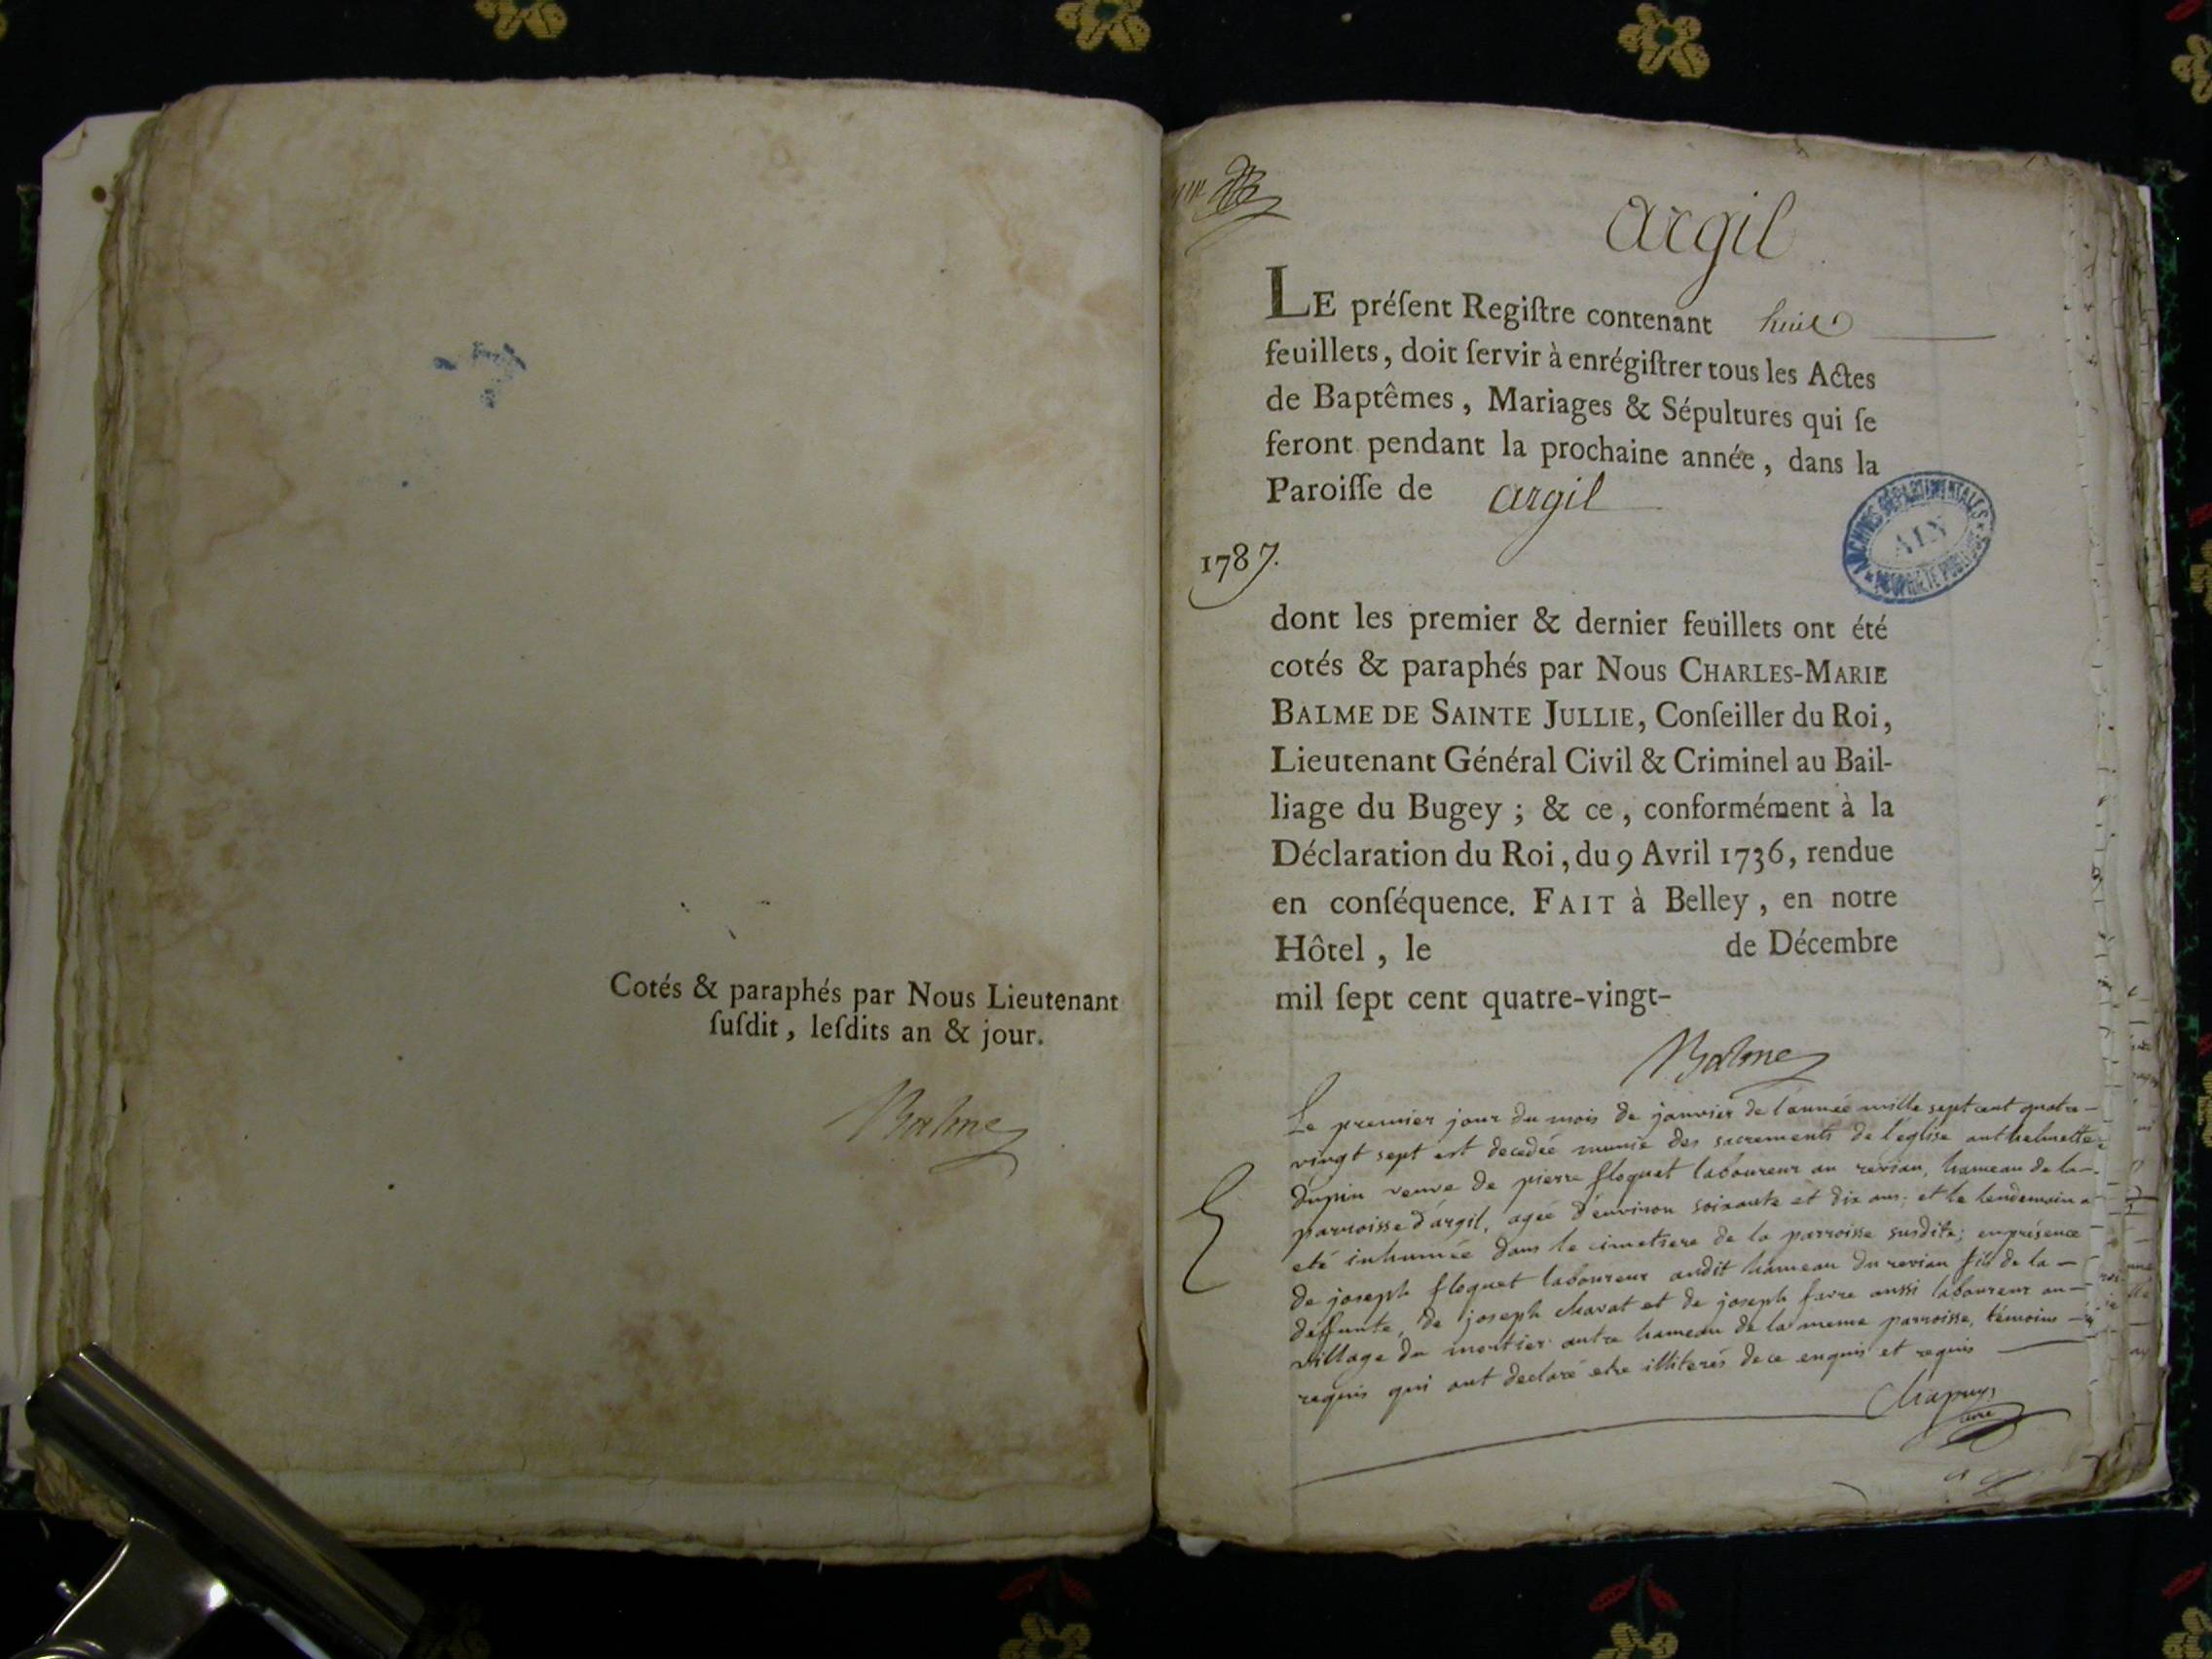 Cotés & paraphés par Nous Lieutenant
ſuſdit, leſdits an & jour.
Balme
argil
LE préſent Regiſtre contenant huit
feuillets, doit ſervir à enrégiſtrer tous les Actes
de Baptêmes, Mariages & Sépultures qui ſe
feront pendant la prochaine année, dans la
Paroiſſe de argil
1787.
ARCHIVES DÉPARTEMENTALES
AIN
PROPRIÉTÉ PUBLIQUE
dont les premier & dernier feuillets ont été
cotés & paraphés par Nous CHARLES-MARIE
BALME DE SAINTE JULLIE, Conſeiller du Roi,
Lieutenant Général Civil & Criminel au Bail-
liage du Bugey ; & ce, conformément à la
Déclaration du Roi, du 9 Avril 1736, rendue
en conſéquence. FAIT à Belley, en notre
Hôtel, le de Décembre
mil ſept cent quatre-vingt-
Balme
Le premier jour du mois de janvier de l'année mille sept cent quatre-
vingt sept est decedée munie des sacrements de l'eglise anthelmette
dupin veuve de pierre floquet laboureur au revian, hameau de la
parroisse d'argil, agée d'environ soixante et dix ans; et le lendemain a
eté inhumée dans le cimetiere de la parroisse susdite; en présence
de joseph floquet laboureur audit hameau du revian fils de la
deffunte, de joseph charat et de joseph favre aussi laboureur au
village du mortier autre hameau de la meme parroisse, témoins
requis qui ont declaré etre illiterés de ce enquis et requis
Chapuys
curé